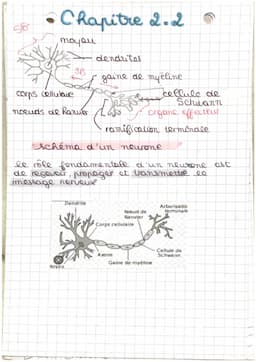 Chapitre 2.2
noyau
dendrites
gaine de myéline
corps cellulaire
cellule de
Schwann
nœuds de Ranvier
organe effecteur
ramification terminale
schéma d'un neurone
le rôle fondamentale d'un neurone est
de recevoir, propager et transmettre le
message nerveux
Dendrite
Nœud de
Ranvier
Arborisation
terminale
Corps cellulaire
Axone
Cellule de
Schwann
Gaine de myéline
Noyau